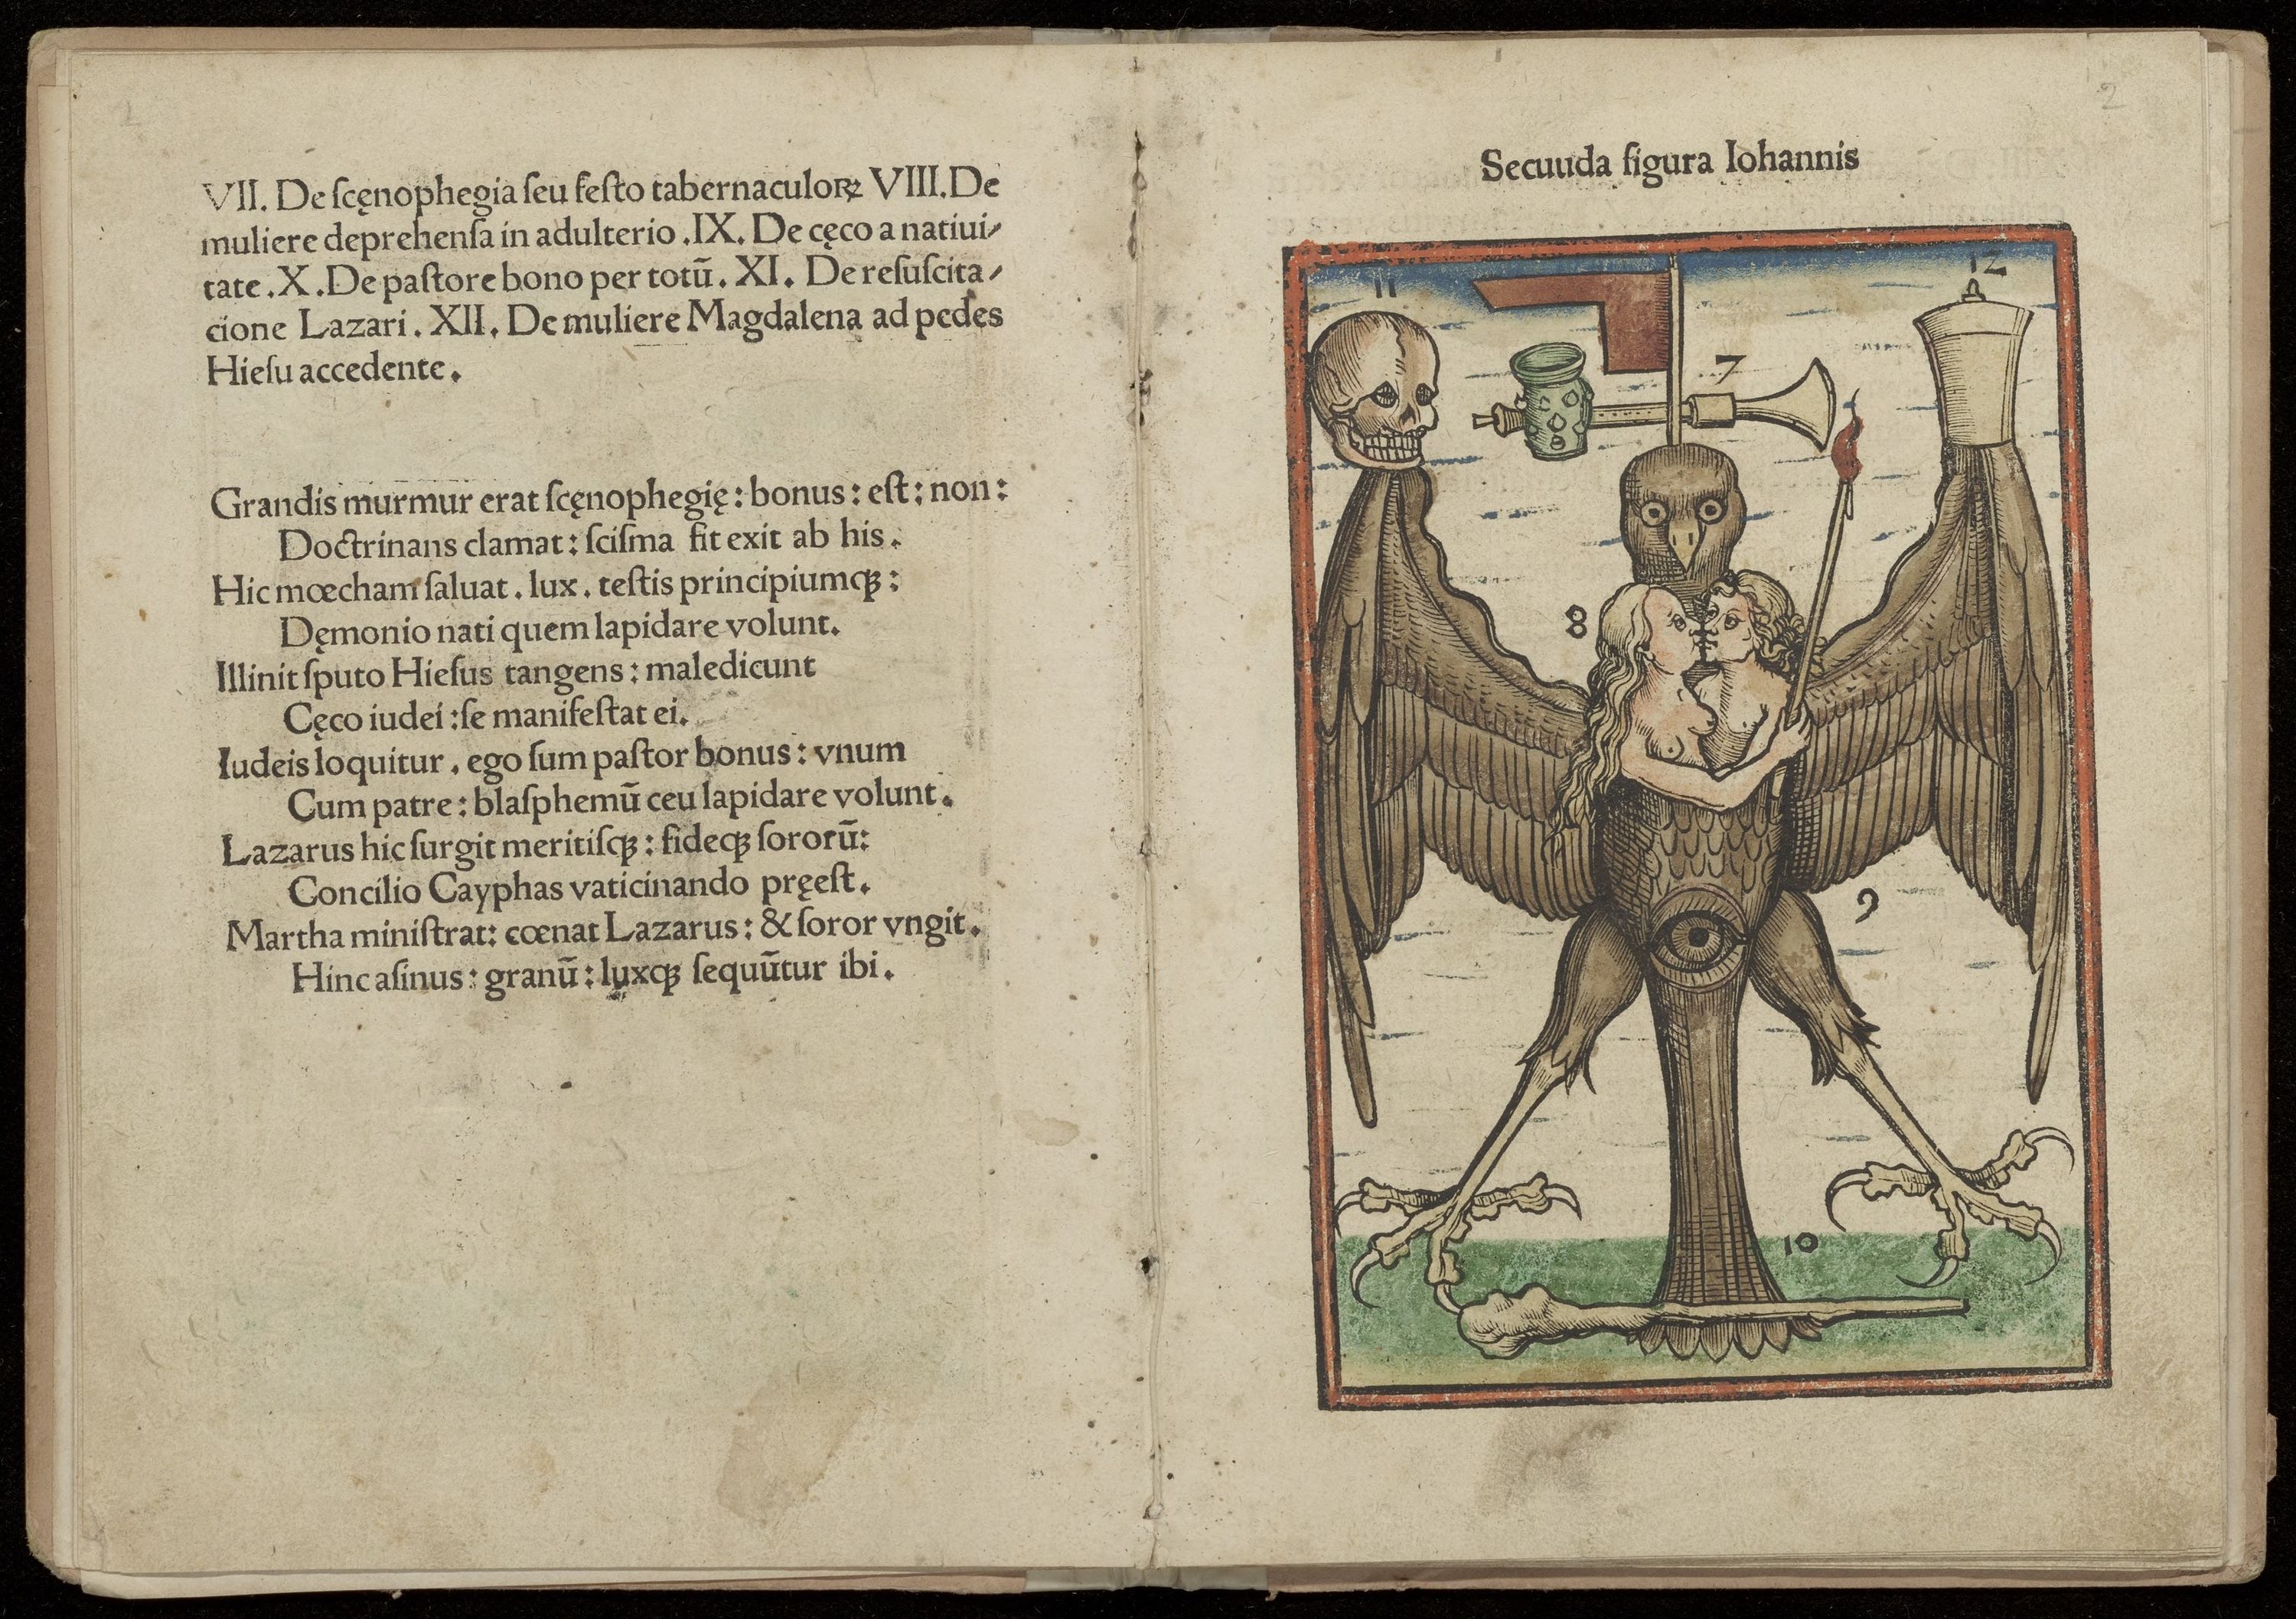 2
VII. De ſcęnophegia ſeu feſto tabernaculoꝝ VIII. De
muliere deprehenſa in adulterio .IX. De cęco a natiui⸗
tate .X. De paſtore bono per totū. XI. De reſuſcita⸗
cione Lazari. XII. De muliere Magdalena ad pedes
Hieſu accedente.
Grandis murmur erat ſcęnophegię: bonus: eſt: non:
Doctrinans clamat: ſciſma fit exit ab his.
Hic mœcham ſaluat. lux. teſtis principiumqꝫ:
Dęmonio nati quem lapidare volunt.
Illinit ſputo Hieſus tangens: maledicunt
Cęco iudei: ſe manifeſtat ei.
Iudeis loquitur. ego ſum paſtor bonus: vnum
Cum patre: blaſphemū ceu lapidare volunt.
Lazarus hic ſurgit meritiſqꝫ: fideqꝫ ſororū:
Concilio Cayphas vaticinando pręeſt.
Martha miniſtrat: cœnat Lazarus: & ſoror vngit.
Hinc aſinus: granū: luxqꝫ ſequūtur ibi.
2
Secuuda figura Iohannis
11
12
7
8
9
10